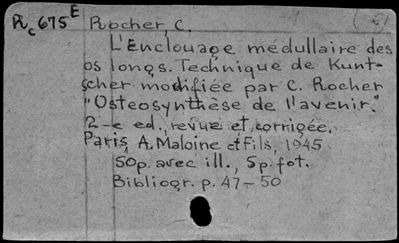 Rc 675 E Rocher, C.
L'Enclouage médullaire des
os longs. Technique de Kunt-
scher modifiée par C. Rocher
"Osteosynthèse de l'avenir."
2-e ed., revue et corrigée.
Paris, A. Maloine et Fils, 1945
50p. avec ill., 5p. fot.
Bibliogr. p. 47-50